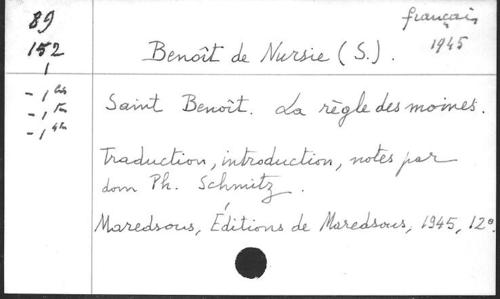 français
1945
89
152
1
Benoît de Nursie (S.).
Saint Benoît. La règle des moines.
Traduction, introduction, notes par
dom Ph. Schmitz.
Maredsous, Éditions de Maredsous, 1945, 12°.